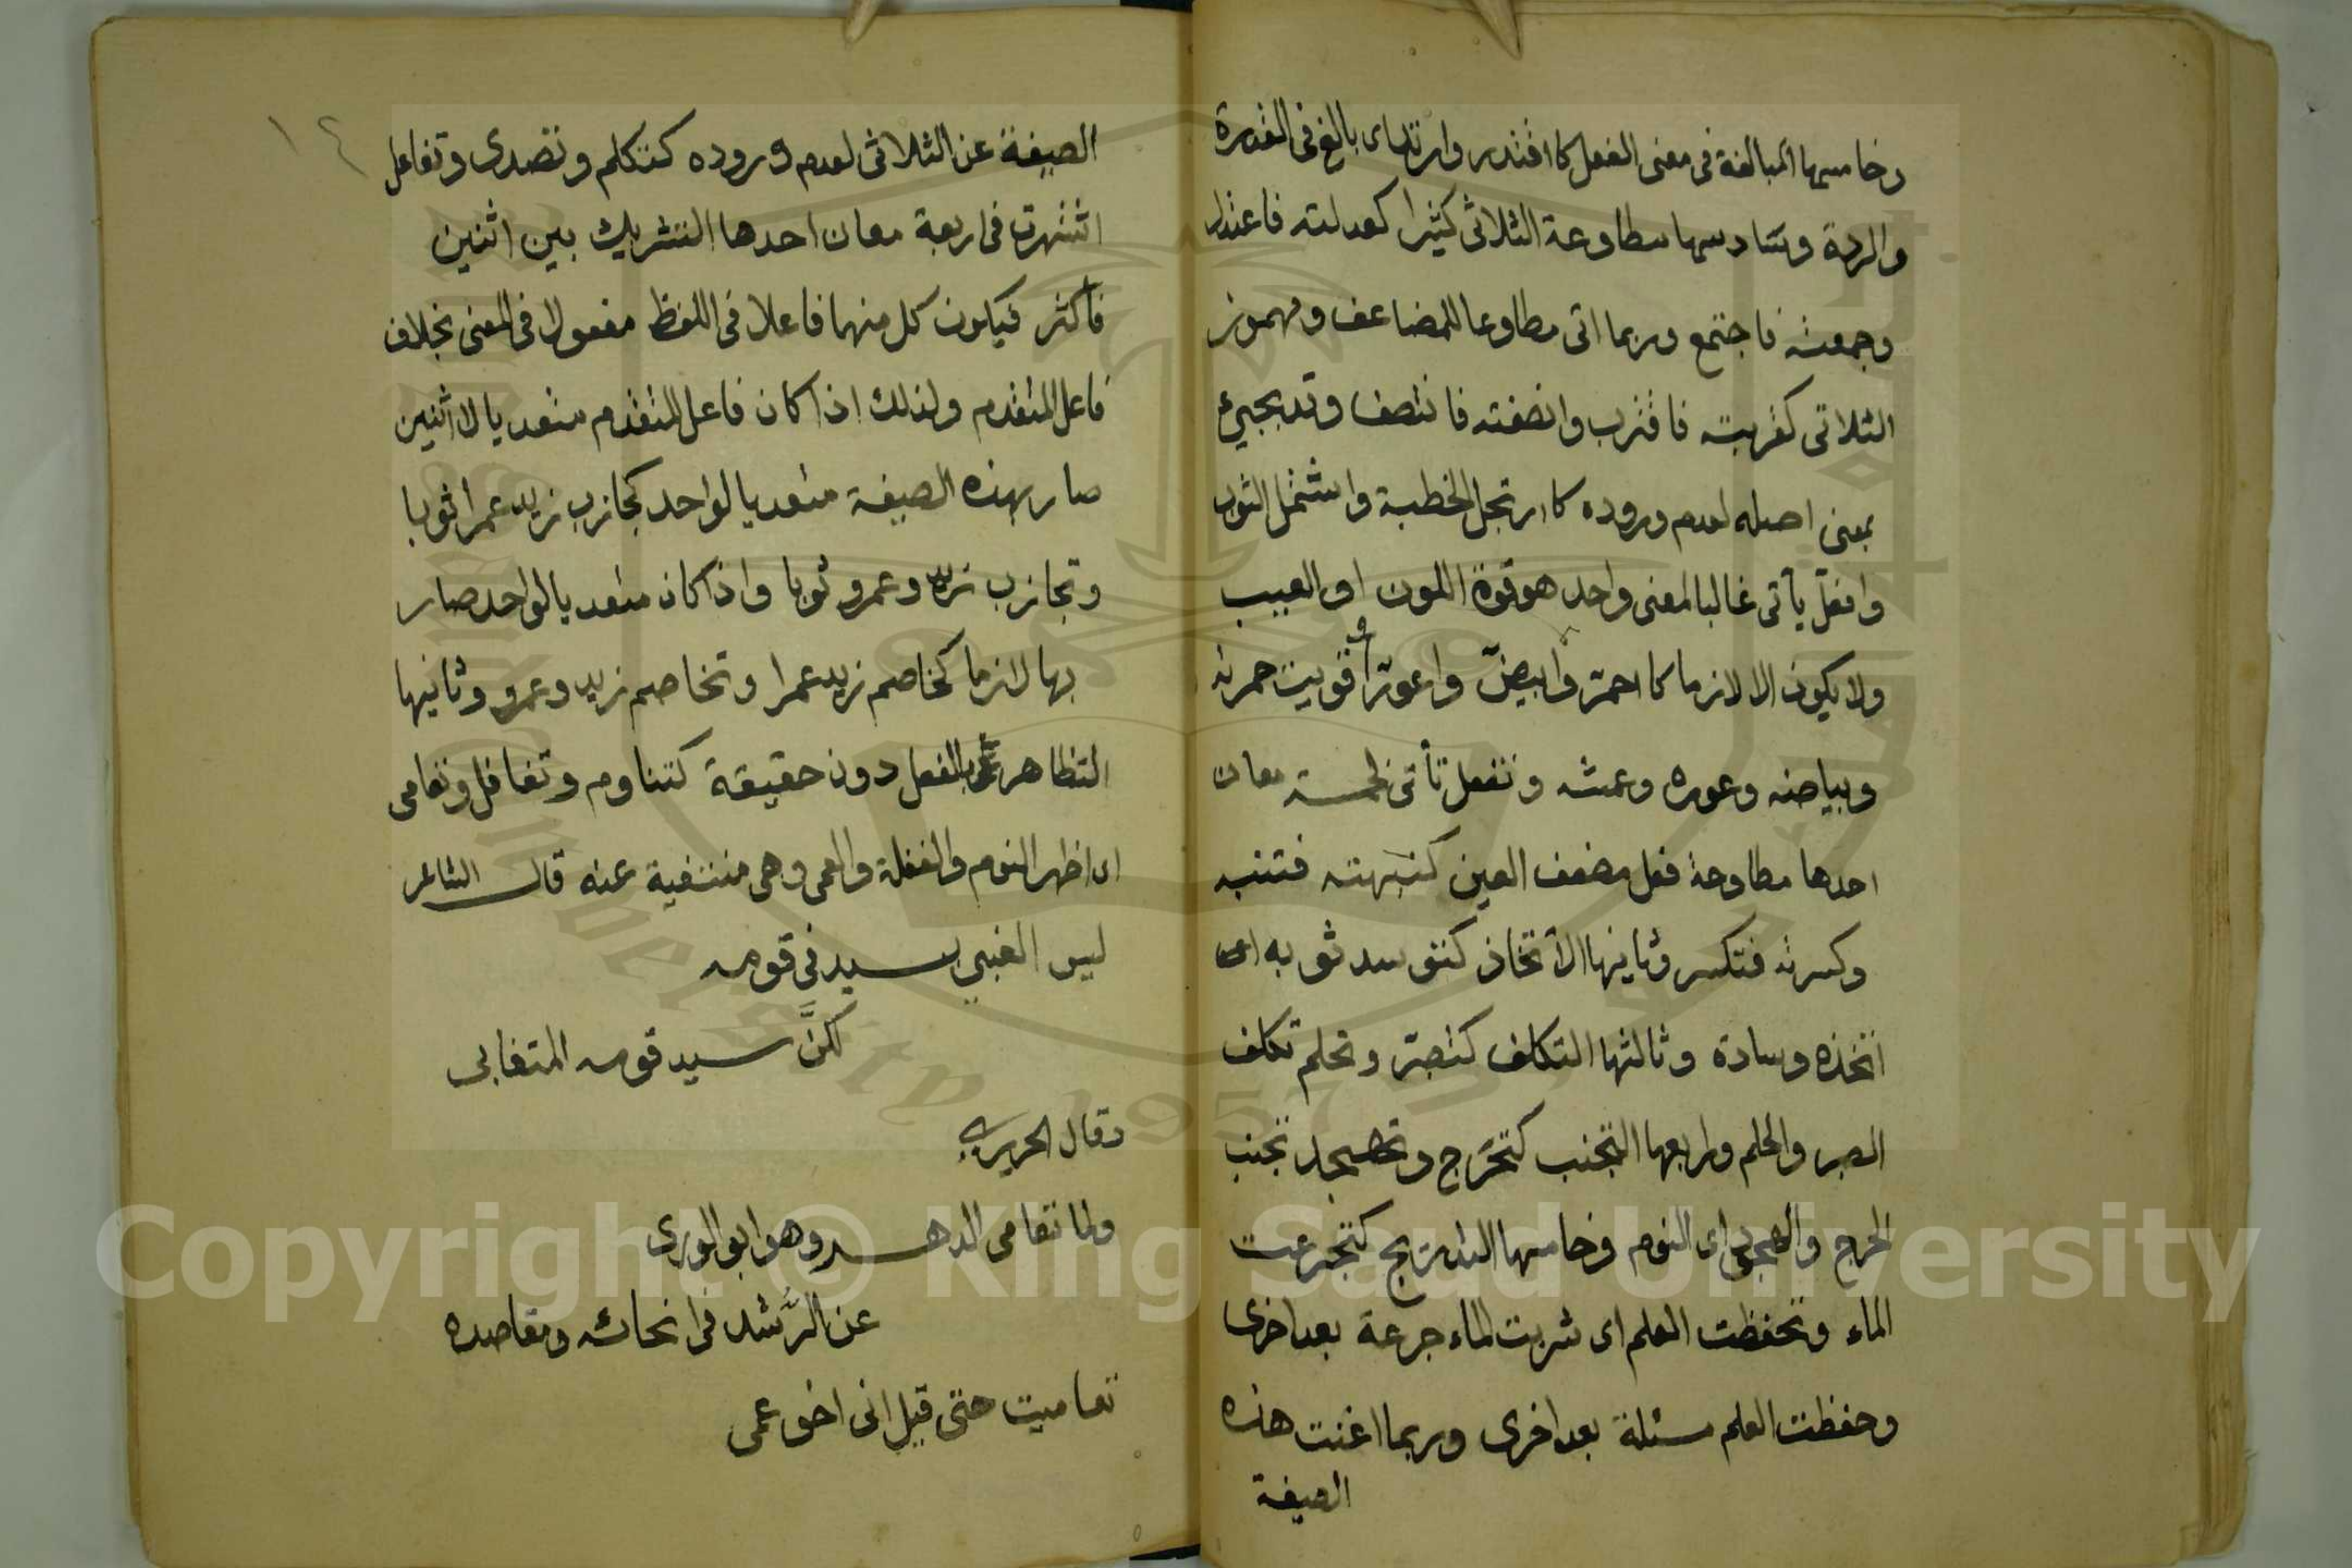 وخامسها المبالغة فى معنى الفعل كاقتدر وارتد اى بالغ فى القدرة
والردة وسادسها مطاوعة الثلاثى كثيرا كعدلته فاعتدل
وجمعته فاجتمع وربما اتى مطاوعا للمضاعف ومهموز
الثلاثى كقربته فاقترب وانصفته فانتصف وقد يجيئ
بمعنى اصله لعدم وروده كارتجل الخطبة واشتمل الثوب
وافعلّ يأتى غالبا لمعنى واحد هو قوة اللون او العيب
ولا يكون الا لازما كاحمرّ وابيضّ واعورّ قويت حمرته
وبياضه وعوره وعمشه وتفعل تأتى لخمسة معان
احدها مطاوعة فعل مضعف العين كنبهته فتنبه
وكسرته فتكسر وثانيها الاتخاذ كتوسد ثوبه اى
اتخذه وسادة وثالثها التكلف كتصبّر وتحلم تكلف
الصبر والحلم ورابعها التجنب كتحرّج وتهجد تجنب
الحرج والهجود اى النوم وخامسها التدريج كتجرعت
الماء وتحفظت العلم اى شربت الماء جرعة بعد اخرى
وحفظت العلم مسئلة بعد اخرى وربما اغنت هذه
الصيغة
١٤
الصيغة عن الثلاثى لعدم وروده كتكلم وتصدى وتفاعل
اشتهرت فى اربعة معان احدها التشريك بين اثنين
فأكثر فيكون كل منهما فاعلا فى اللفظ مفعولا فى المعنى بخلاف
فاعل المتقدم ولذلك اذا كان فاعل المتقدم متعديا لاثنين
صار بهذه الصيغة متعديا لواحد كجازب زيد عمرا ثوبا
وتجازب زيد وعمرو ثوبا واذا كان متعديا لواحد صار
بها لازما كخاصم زيد عمرا وتخاصم زيد وعمرو وثانيها
التظاهر بالفعل دون حقيقة كتناوم وتغافل وتعامى
اى اظهر النوم والغفلة والعمى وهى منتفية عنه قال الشاعر
ليس الغبي بسيد فى قومه
لكنَّ سيد قومه المتغابى
وقال الحريرى
ولما تعامى الدهر وهو ابو الورى
عن الرُّشد فى انحائه ومقاصده
تعاميت حتى قيل انى اخو عمى
Copyright © King Saud University